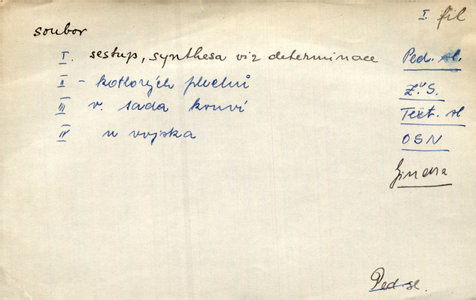 I. fil
soubor
I. sestup, synthesa viz determinace Ped. sl.
II - kotlových plechů Z.ů S.
III v. sada konví Text. sl
IV u vojska OSN
Jindra
Ped. sl.